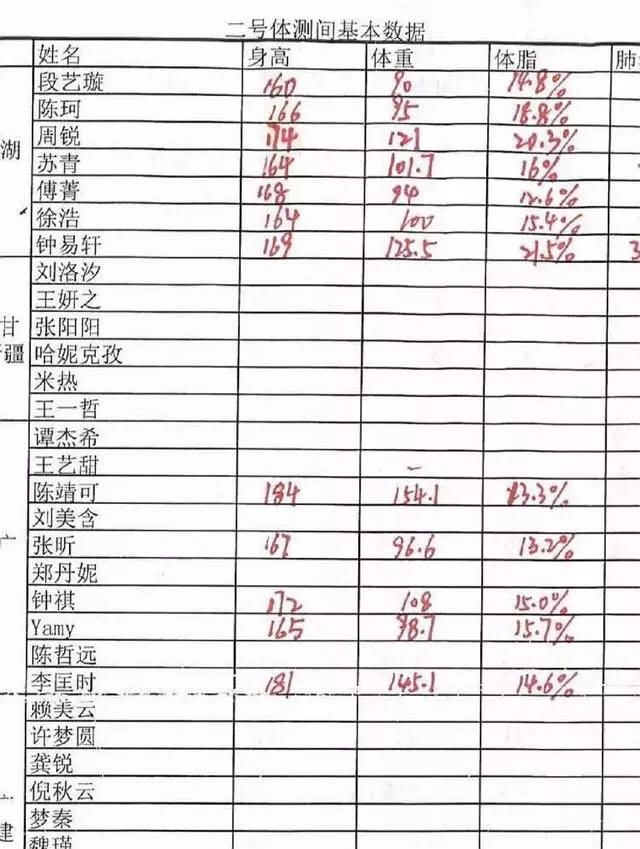 二号体测间基本数据
姓名 身高 体重 体脂 肺
段艺璇 160 90 14.8%
陈珂 166 95 18.8%
周锐 174 121 20.3%
湖
苏青 164 101.7 16%
傅菁 168 94 12.6%
徐浩 164 100 15.4%
钟易轩 169 125.5 21.5% 3
刘洛汐
王妍之
甘
张阳阳
疆
哈妮克孜
米热
王一哲
谭杰希
王艺甜
陈靖可 184 154.1 13.3%
刘美含
张昕 167 96.6 13.2%
郑丹妮
钟祺 172 108 15.0%
Yamy 165 98.7 15.7%
陈哲远
李匡时 181 145.1 14.6%
赖美云
许梦圆
龚锐
倪秋云
梦秦
建
魏瑾